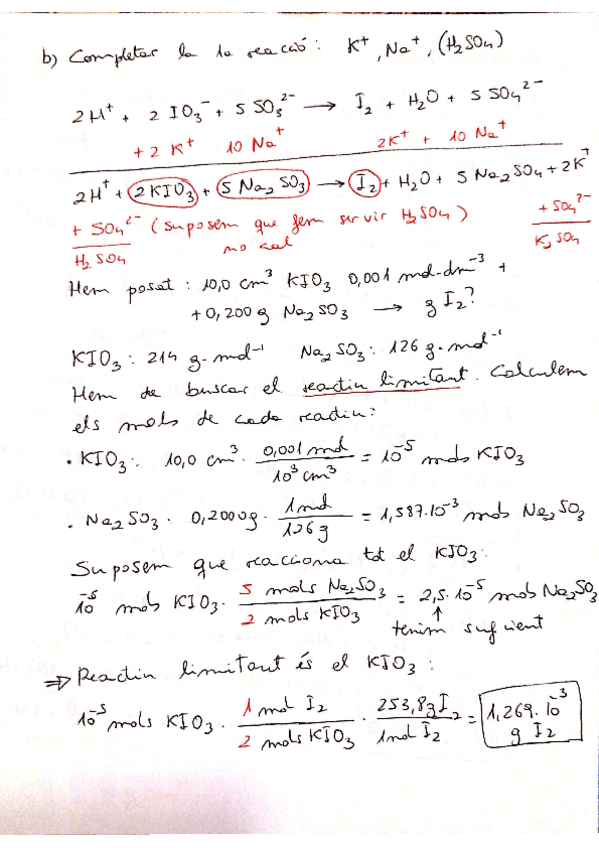 b) Completar la 1a reacció: K⁺, Na⁺, (H₂SO₄)
2H⁺ + 2 IO₃⁻ + 5 SO₃²⁻ → I₂ + H₂O + 5 SO₄²⁻
+ 2 K⁺ 10 Na⁺ 2K⁺ + 10 Na⁺
2H⁺ + 2 KIO₃ + 5 Na₂SO₃ → I₂ + H₂O + 5 Na₂SO₄ + 2K⁺
+ SO₄²⁻ (suposem que fem servir H₂SO₄) + SO₄²⁻
H₂SO₄ no cal K₂SO₄
Hem posat: 10,0 cm³ KIO₃ 0,001 mol·dm⁻³ +
+ 0,200 g Na₂SO₃ → g I₂?
KIO₃: 214 g·mol⁻¹ Na₂SO₃: 126 g·mol⁻¹
Hem de buscar el reactiu limitant. Calculem
els mols de cada reactiu:
· KIO₃: 10,0 cm³ · 0,001 mol / 10³ cm³ = 10⁻⁵ mols KIO₃
· Na₂SO₃ · 0,2000g · 1 mol / 126 g = 1,587·10⁻³ mols Na₂SO₃
Suposem que reacciona tot el KIO₃:
10⁻⁵ mols KIO₃ · 5 mols Na₂SO₃ / 2 mols KIO₃ = 2,5·10⁻⁵ mols Na₂SO₃
↑
tenim suficient
⇒ Reactiu limitant és el KIO₃:
10⁻⁵ mols KIO₃ · 1 mol I₂ / 2 mols KIO₃ · 253,8g I₂ / 1 mol I₂ = 1,269·10⁻³
g I₂